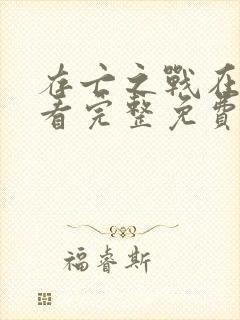 存亡之戰在
看完整免費
福睿斯